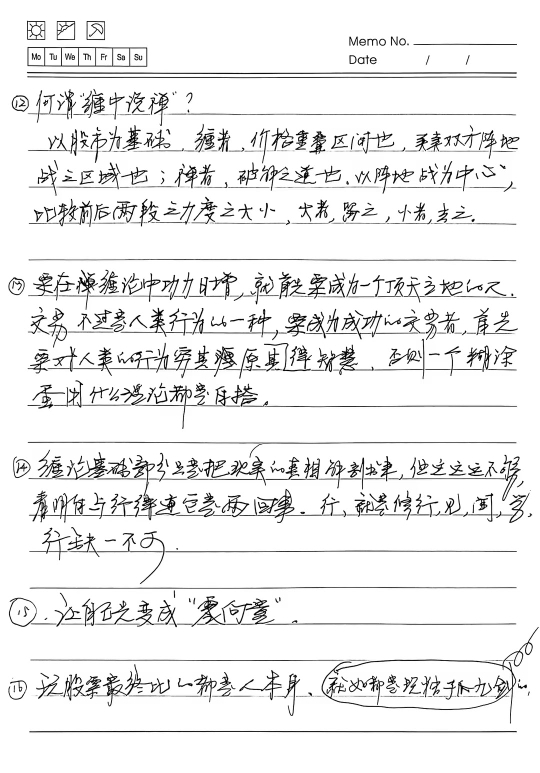 Memo No.
Mo Tu We Th Fr Sa Su
Date / /
⑫ 何谓“缠中说禅”？
以股市为基础。缠者，价格重叠区间也，买卖双方阵地
战之区域也；禅者，破解之道也。以阵地战为中心，
比较前后两段之力度之大小，大者，留之，小者，去之。
⑬ 要在禅缠论中功力日增，就首先要成为一个顶天立地的人。
交易不过是人类行为的一种，要成为成功的交易者，首先
要对人类的行为穷其源原其得智慧，否则一个糊涂
蛋用什么理论都是白搭。
⑭ 缠论基础部分只是把现实的真相解剖出来，但这远远不够，
看明白与行得通是两回事。行，就是修行，见，闻，学，
行缺一不可。
⑮ 让自己先变成“零向量”。
⑯ 玩股票最终比的都是人本身、就如都是玩独孤九剑的，